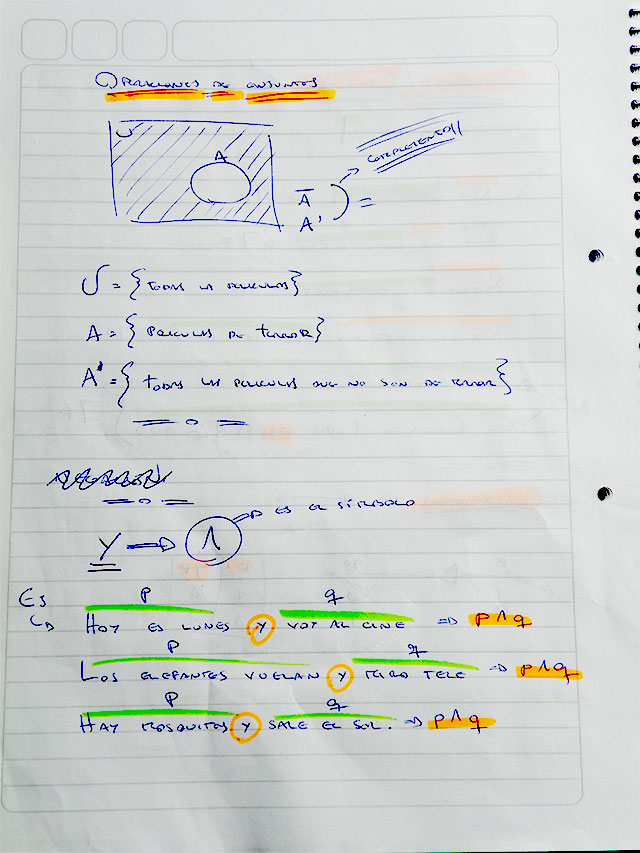 Operaciones de conjuntos
U
A
Ā
A' = complemento //
U = { todas las películas }
A = { películas de terror }
A' = { todas las películas que no son de terror }
Y ⇒ ∧ → es el símbolo
Ej
p q
Hoy es lunes y voy al cine ⇒ p ∧ q
p q
Los elefantes vuelan y miro tele ⇒ p ∧ q
p q
Hay mosquitos y sale el sol. ⇒ p ∧ q